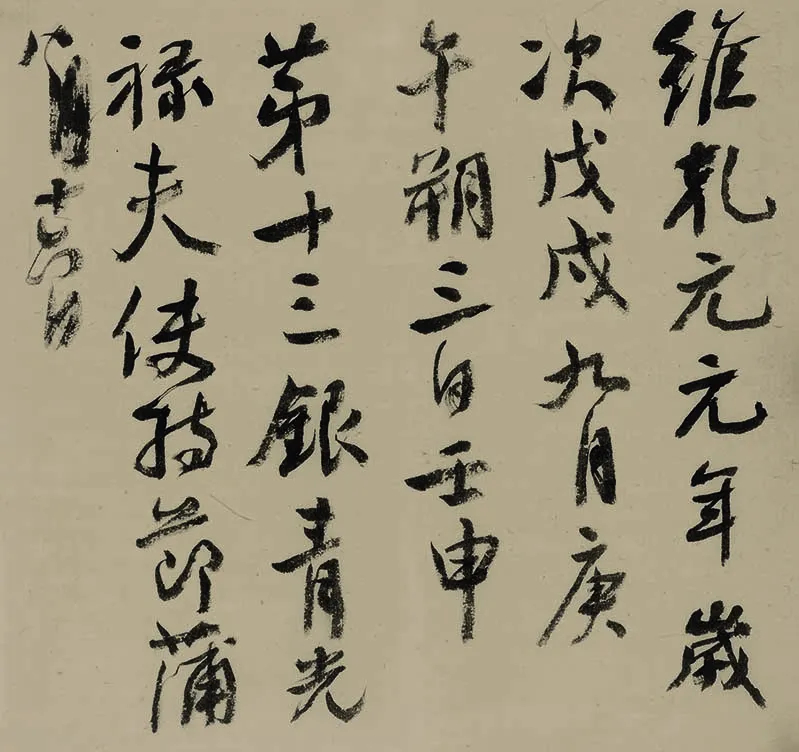 維乾元元年歲
次戊戌九月庚
午朔三日壬申
苐十三銀青光
祿夫使持節蒲
八月